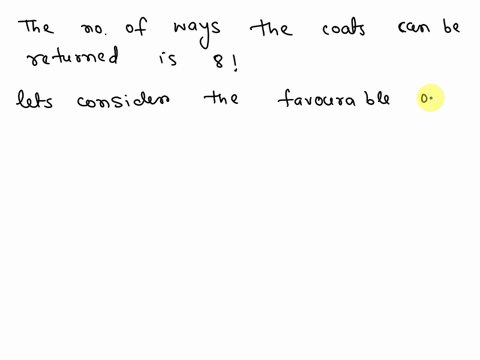 The no. of ways the coats can be
returned is 8!
lets consider the favourable o.